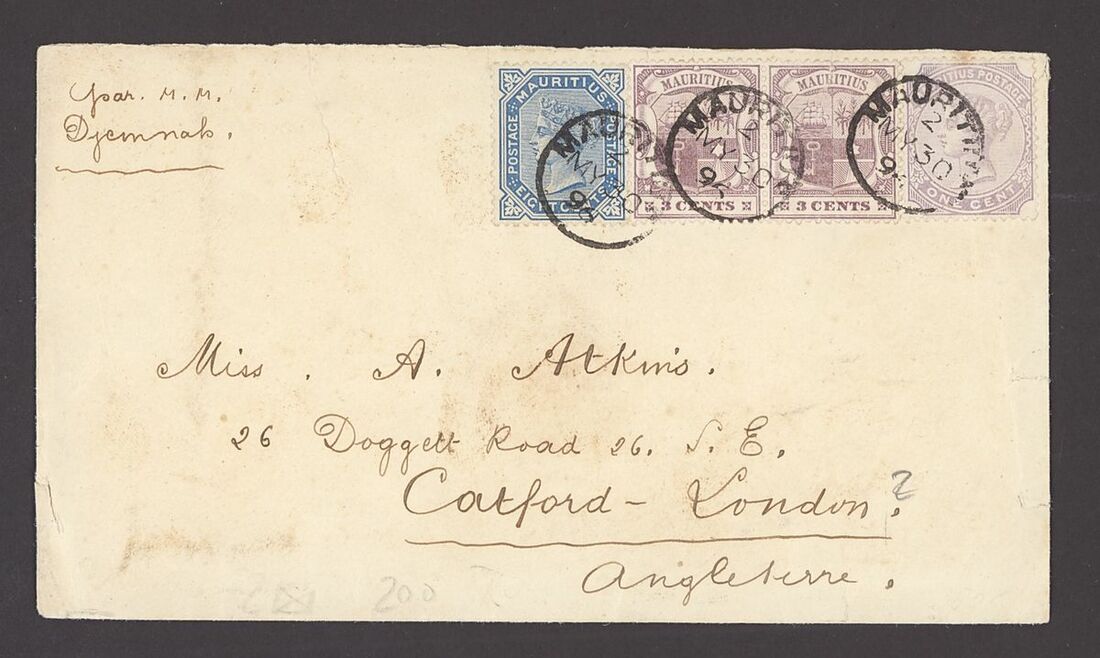 par. M. M.
Djemnah.
MAURITIUS
POSTAGE
POSTAGE
EIGHT CENTS
MAURITIUS
3 CENTS
MAURITIUS
3 CENTS
MAURITIUS POSTAGE
ONE CENT
MAURITIUS
2
MY 30
96
MAURITIUS
2
MY 30
96
MAURITIUS
2
MY 30
96
Miss. A. Atkins.
26 Doggett Road 26. S. E.
Catford - London.
Angleterre.
200